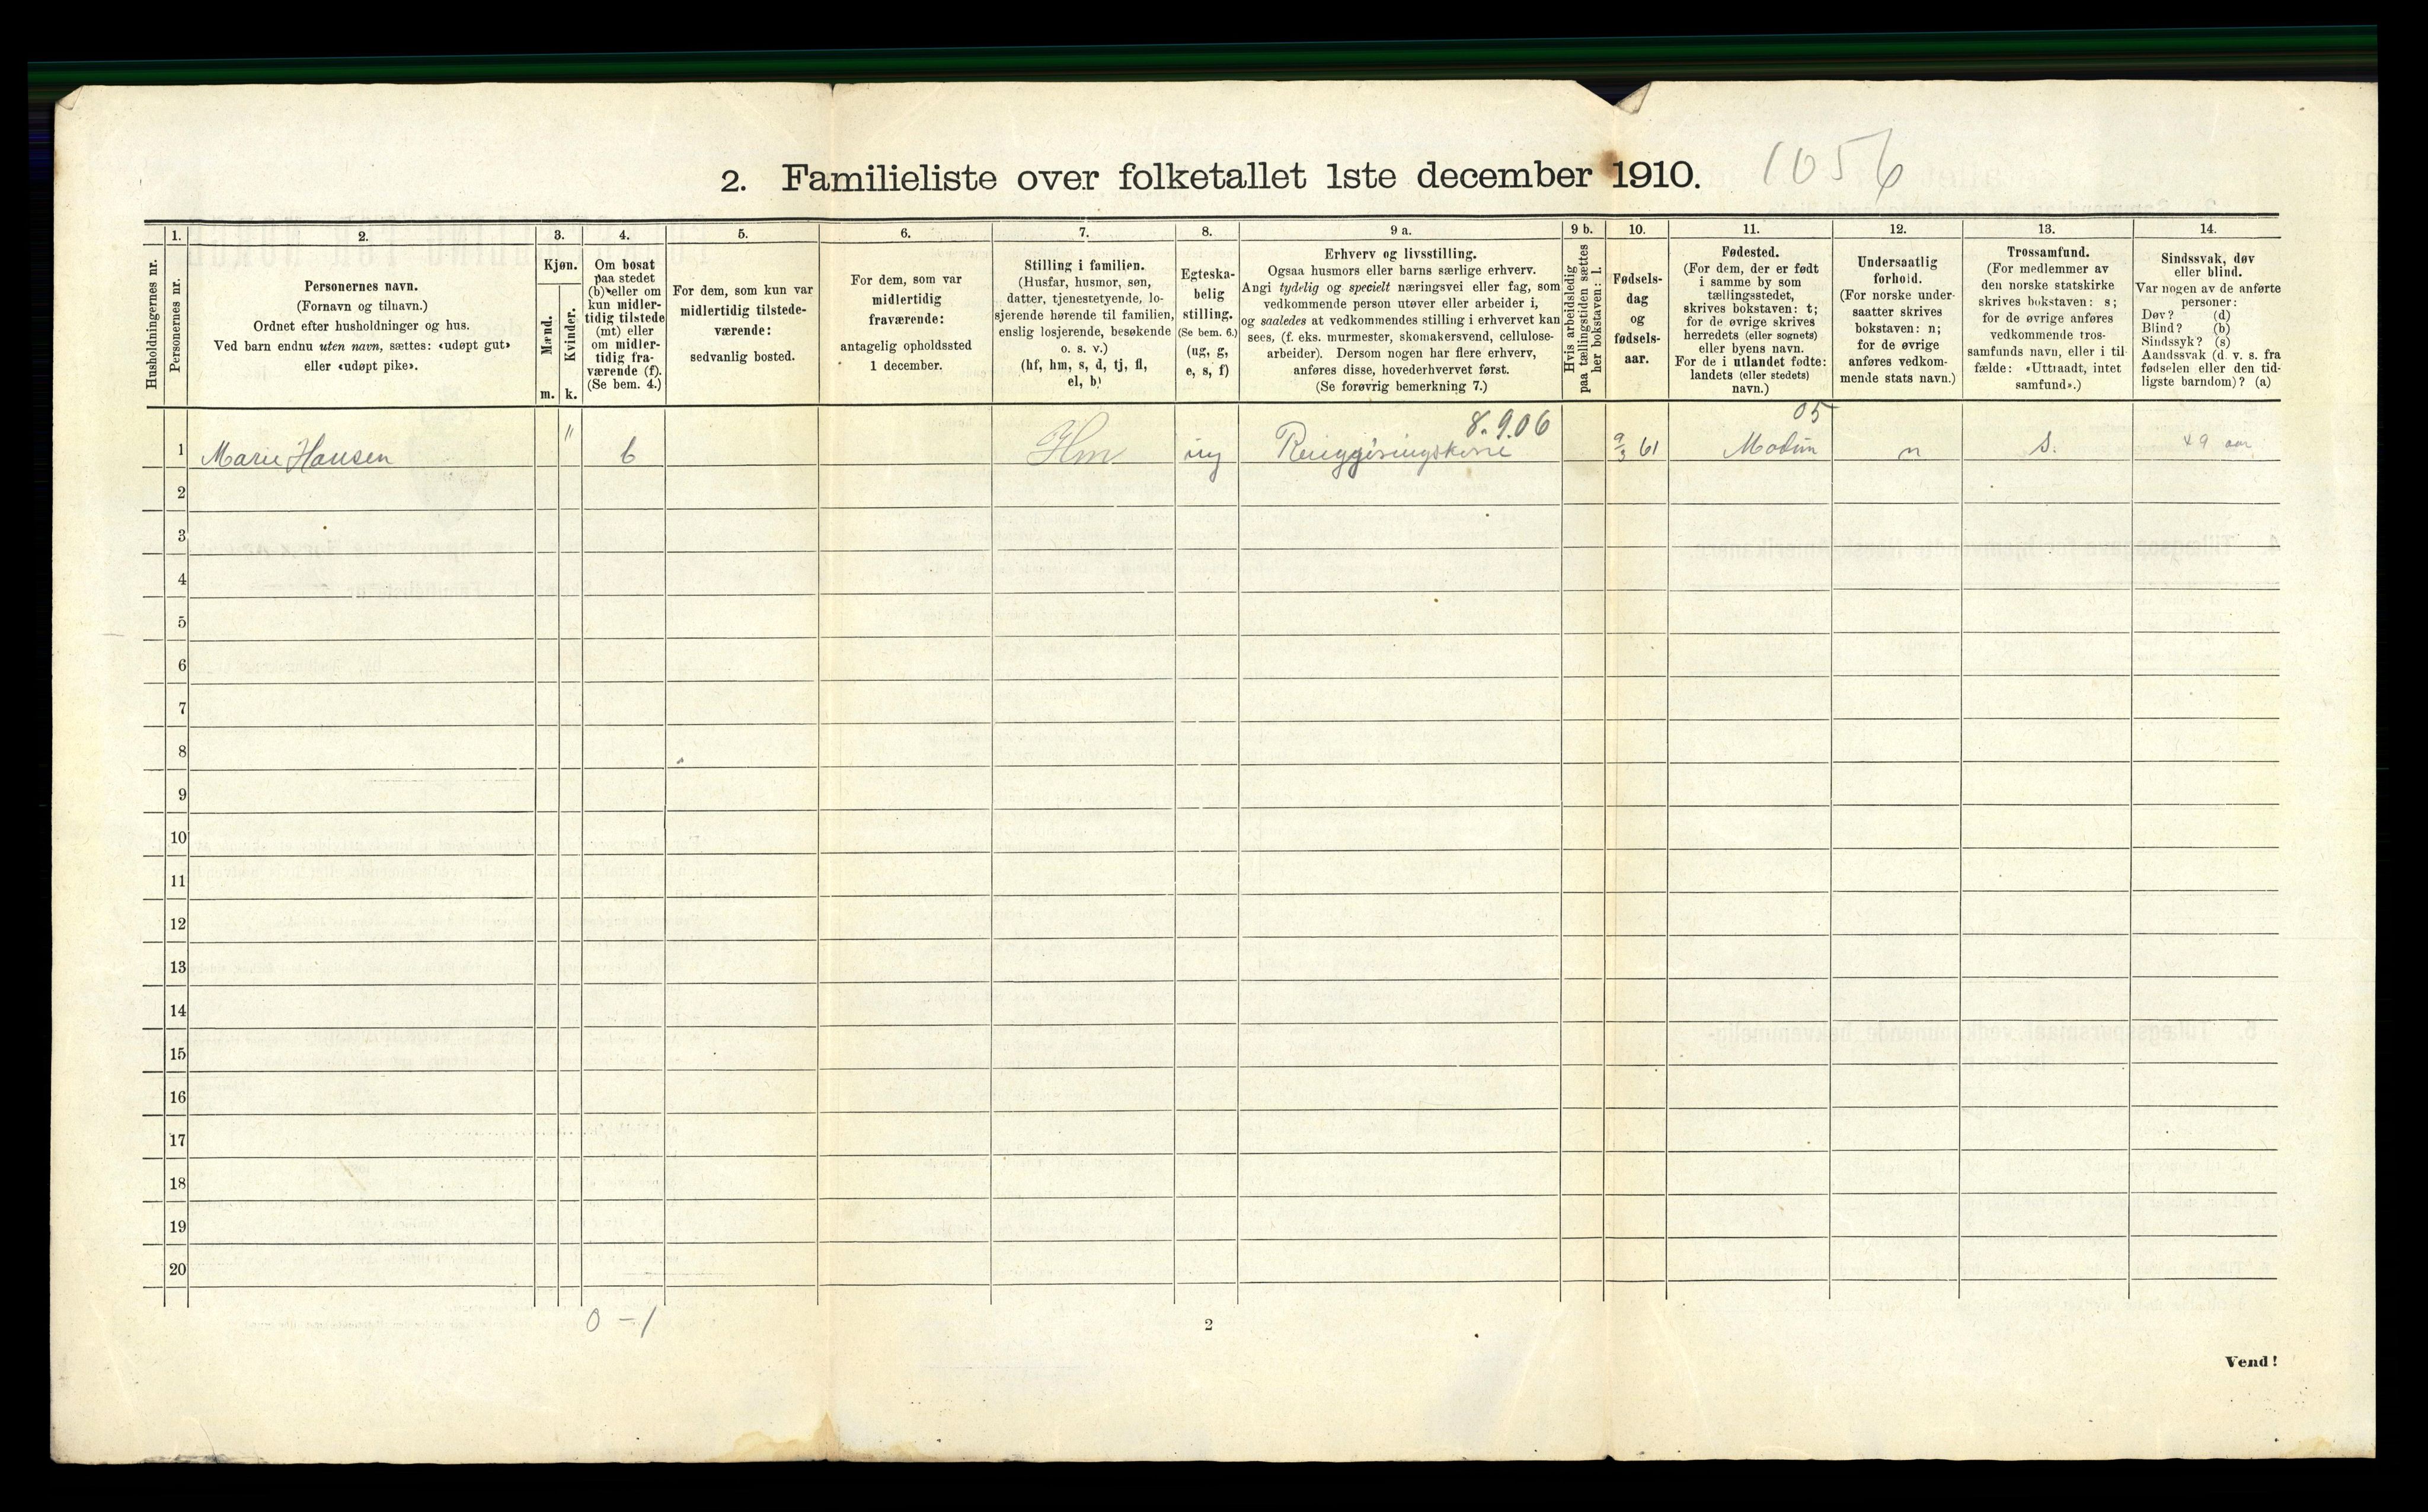 2. Familieliste over folketallet 1ste december 1910. 1056
Husholdningernes nr.
1.
Personernes nr.
2.
Personernes navn.
(Fornavn og tilnavn.)
Ordnet efter husholdninger og hus.
Ved barn endnu uten navn, sættes: «udøpt gut»
eller «udøpt pike».
3.
Kjøn.
Mænd.
Kvinder.
m. k.
4.
Om bosat
paa stedet
(b) eller om
kun midler-
tidig tilstede
(mt) eller
om midler-
tidig fra-
værende (f).
(Se bem. 4.)
5.
For dem, som kun var
midlertidig tilstede-
værende:
sedvanlig bosted.
6.
For dem, som var
midlertidig
fraværende:
antagelig opholdssted
1 december.
7.
Stilling i familien.
(Husfar, husmor, søn,
datter, tjenestetyende, lo-
sjerende hørende til familien,
enslig losjerende, besøkende
o. s. v.)
(hf, hm, s, d, tj, fl,
el, b)
8.
Egteska-
belig
stilling.
(Se bem. 6.)
(ug, g,
e, s, f)
9 a.
Erhverv og livsstilling.
Ogsaa husmors eller barns særlige erhverv.
Angi tydelig og specielt næringsvei eller fag, som
vedkommende person utøver eller arbeider i,
og saaledes at vedkommendes stilling i erhvervet kan
sees, (f. eks. murmester, skomakersvend, cellulose-
arbeider). Dersom nogen har flere erhverv,
anføres disse, hovederhvervet først.
(Se forøvrig bemerkning 7.)
9 b.
Hvis arbeidsledig
paa tællingstiden sættes
her bokstaven: l.
10.
Fødsels-
dag
og
fødsels-
aar.
11.
Fødested.
(For dem, der er født
i samme by som
tællingsstedet,
skrives bokstaven: t;
for de øvrige skrives
herredets (eller sognets)
eller byens navn.
For de i utlandet fødte:
landets (eller stedets)
navn.)
12.
Undersaatlig
forhold.
(For norske under-
saatter skrives
bokstaven: n;
for de øvrige
anføres vedkom-
mende stats navn.)
13.
Trossamfund.
(For medlemmer av
den norske statskirke
skrives bokstaven: s;
for de øvrige anføres
vedkommende tros-
samfunds navn, eller i til-
fælde: «Uttraadt, intet
samfund».)
14.
Sindssvak, døv
eller blind.
Var nogen av de anførte
personer:
Døv? (d)
Blind? (b)
Sindssyk? (s)
Aandssvak (d. v. s. fra
fødselen eller den tid-
ligste barndom)? (a)
8.9.06 05
1 Marie Hansen " b Hm ug Renggjøringskone 9/3 61 Modum n S. 49 aar
2
3
4
5
6
7
8
9
10
11
12
13
14
15
16
17
18
19
20
0 - 1
2
Vend!